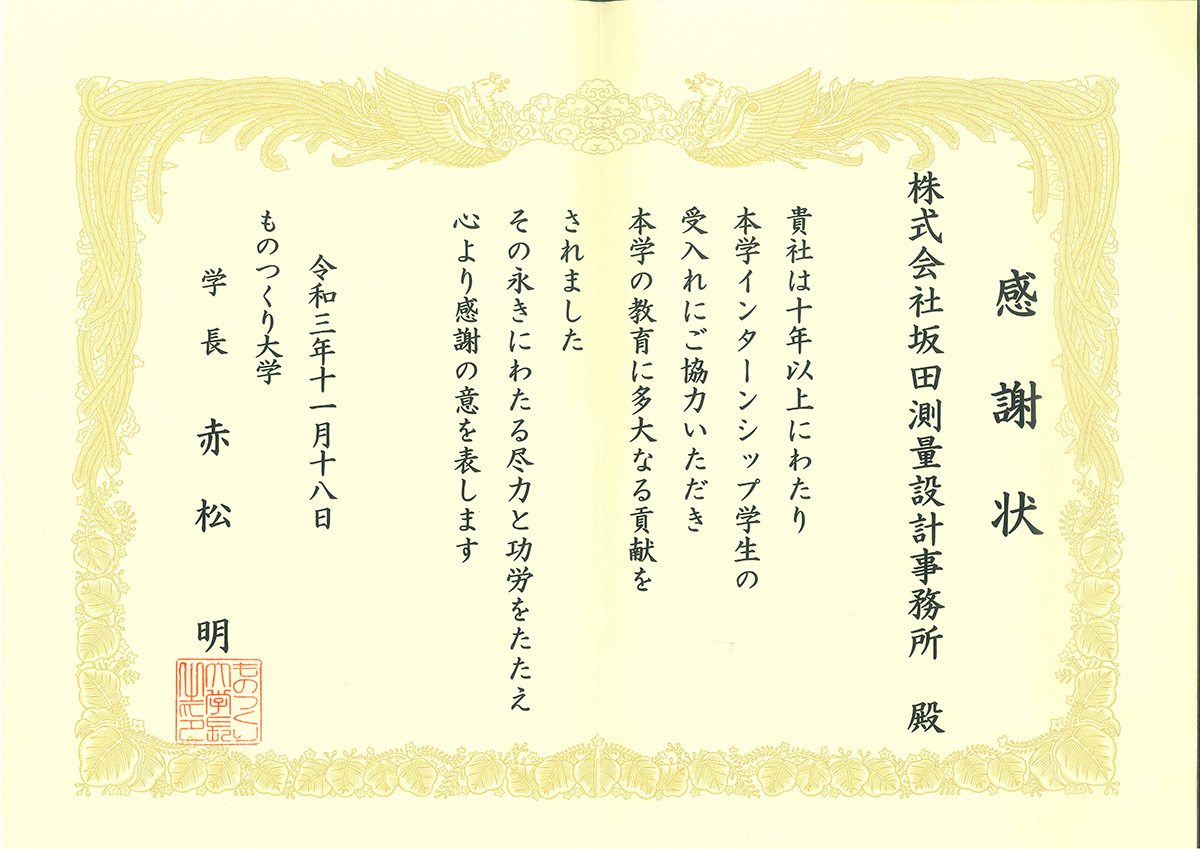 感謝状
株式会社坂田測量設計事務所 殿
貴社は十年以上にわたり
本学インターンシップ学生の
受入れにご協力いただき
本学の教育に多大なる貢献を
されました
その永きにわたる尽力と功労をたたえ
心より感謝の意を表します
令和三年十一月十八日
ものつくり大学
学長 赤松 明
ものつくり
大学長
之印